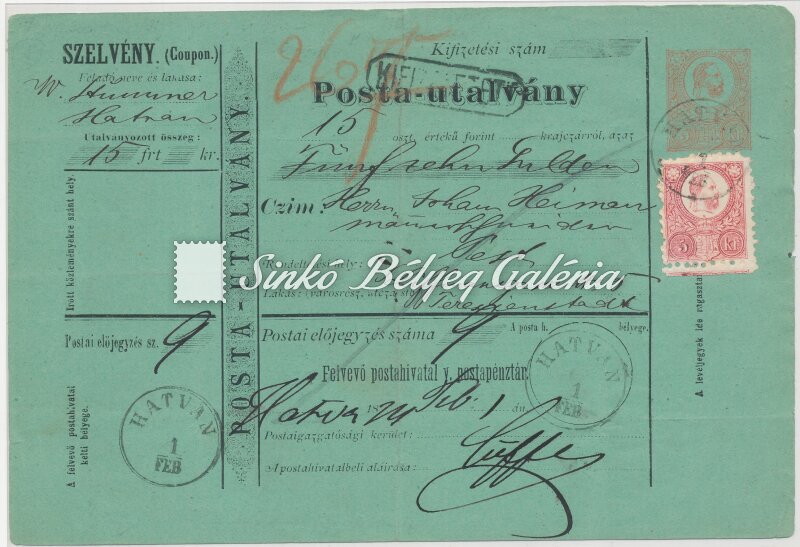 SZELVÉNY. (Coupon.)
Feladó neve és lakása:
W. Stummer
Hatván
Utalványozott összeg:
15 frt kr.
Irott közleményekre szánt hely.
Postai előjegyzés sz. 9
A felvevő postahivatal
kelti bélyege.
HATVAN
1
FEB
POSTA-UTALVÁNY.
Kifizetési szám
Posta-utalvány
15 oszt. értékű forint krajczárról, azaz
Fünfzehn Gulden
Czim: Herrn Johann Heiman
Pest
Rendeltetési hely:
Lakás: (városrész, utcza
Theresienstadt
Sinkó Bélyeg Galéria
Postai előjegyzés száma 9
A posta h. bélyege.
Felvevő postahivatal v. postapénztár.
Hatvan 187 Feb. 1 án
Postaigazgatósági kerület:
A postahivatalbeli aláirása:
HATVAN
1
FEB
HATV
5 KR
5 Kr
A levéljegyek ide ragasztan